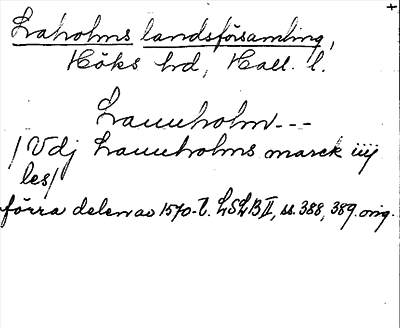 +
Laholms landsförsamling,
Höks hd, Hall. l.
Lauuholm---
/Vdj Lauuholms marck iiij
les/
förra delen av 1570-t. LSLB II, ss. 388, 389. orig.